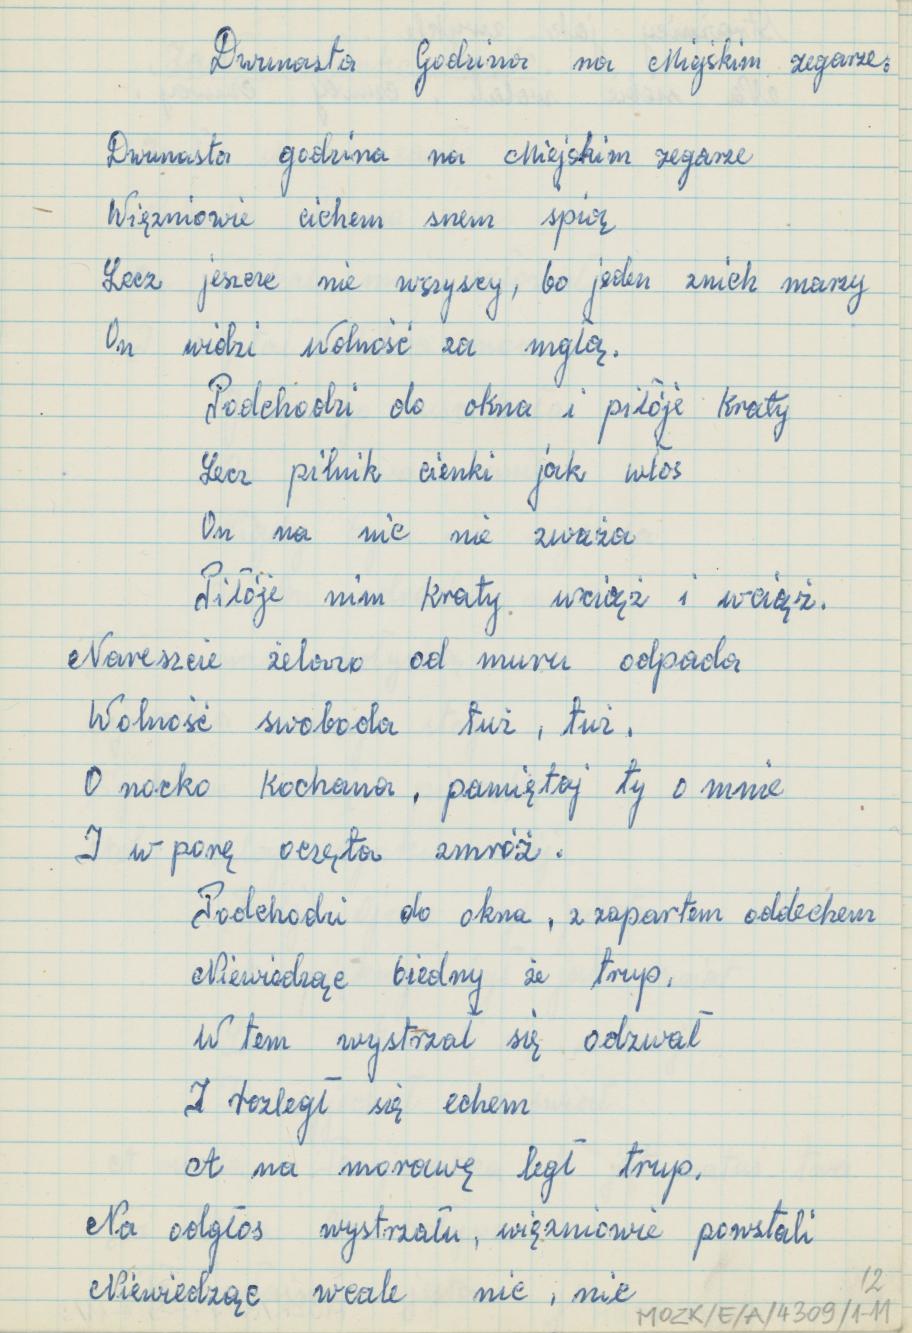 Dwunasta Godzina na Miejskim zegarze.
Dwunasta godzina na Miejskim zegarze
Więzniowie cichem snem spią
Lecz jeszcze nie wszyscy, bo jeden znich marzy
On widzi Wolność za mglą.
Podchodzi do okna i piłóje Kraty
Lecz pilnik cienki jak włos
On na nic nie zważa
Piłóje nim Kraty wciąż i wciąż.
Nareszcie żelazo od muru odpada
Wolność swoboda tuż, tuż.
O nocko Kochana, pamiętaj ty o mnie
I w porę oczęta zmróż.
Podchodzi do okna, z zapartem oddechem
Niewiedząc biedny że trup.
W tem wystrzał się odzwał
I rozległ się echem
A na morawę legł trup.
Na odgłos wystrzału, więzniowie powstali
Niewiedząc wcale nic, nic
12
MOZK/E/A/4309/1-11